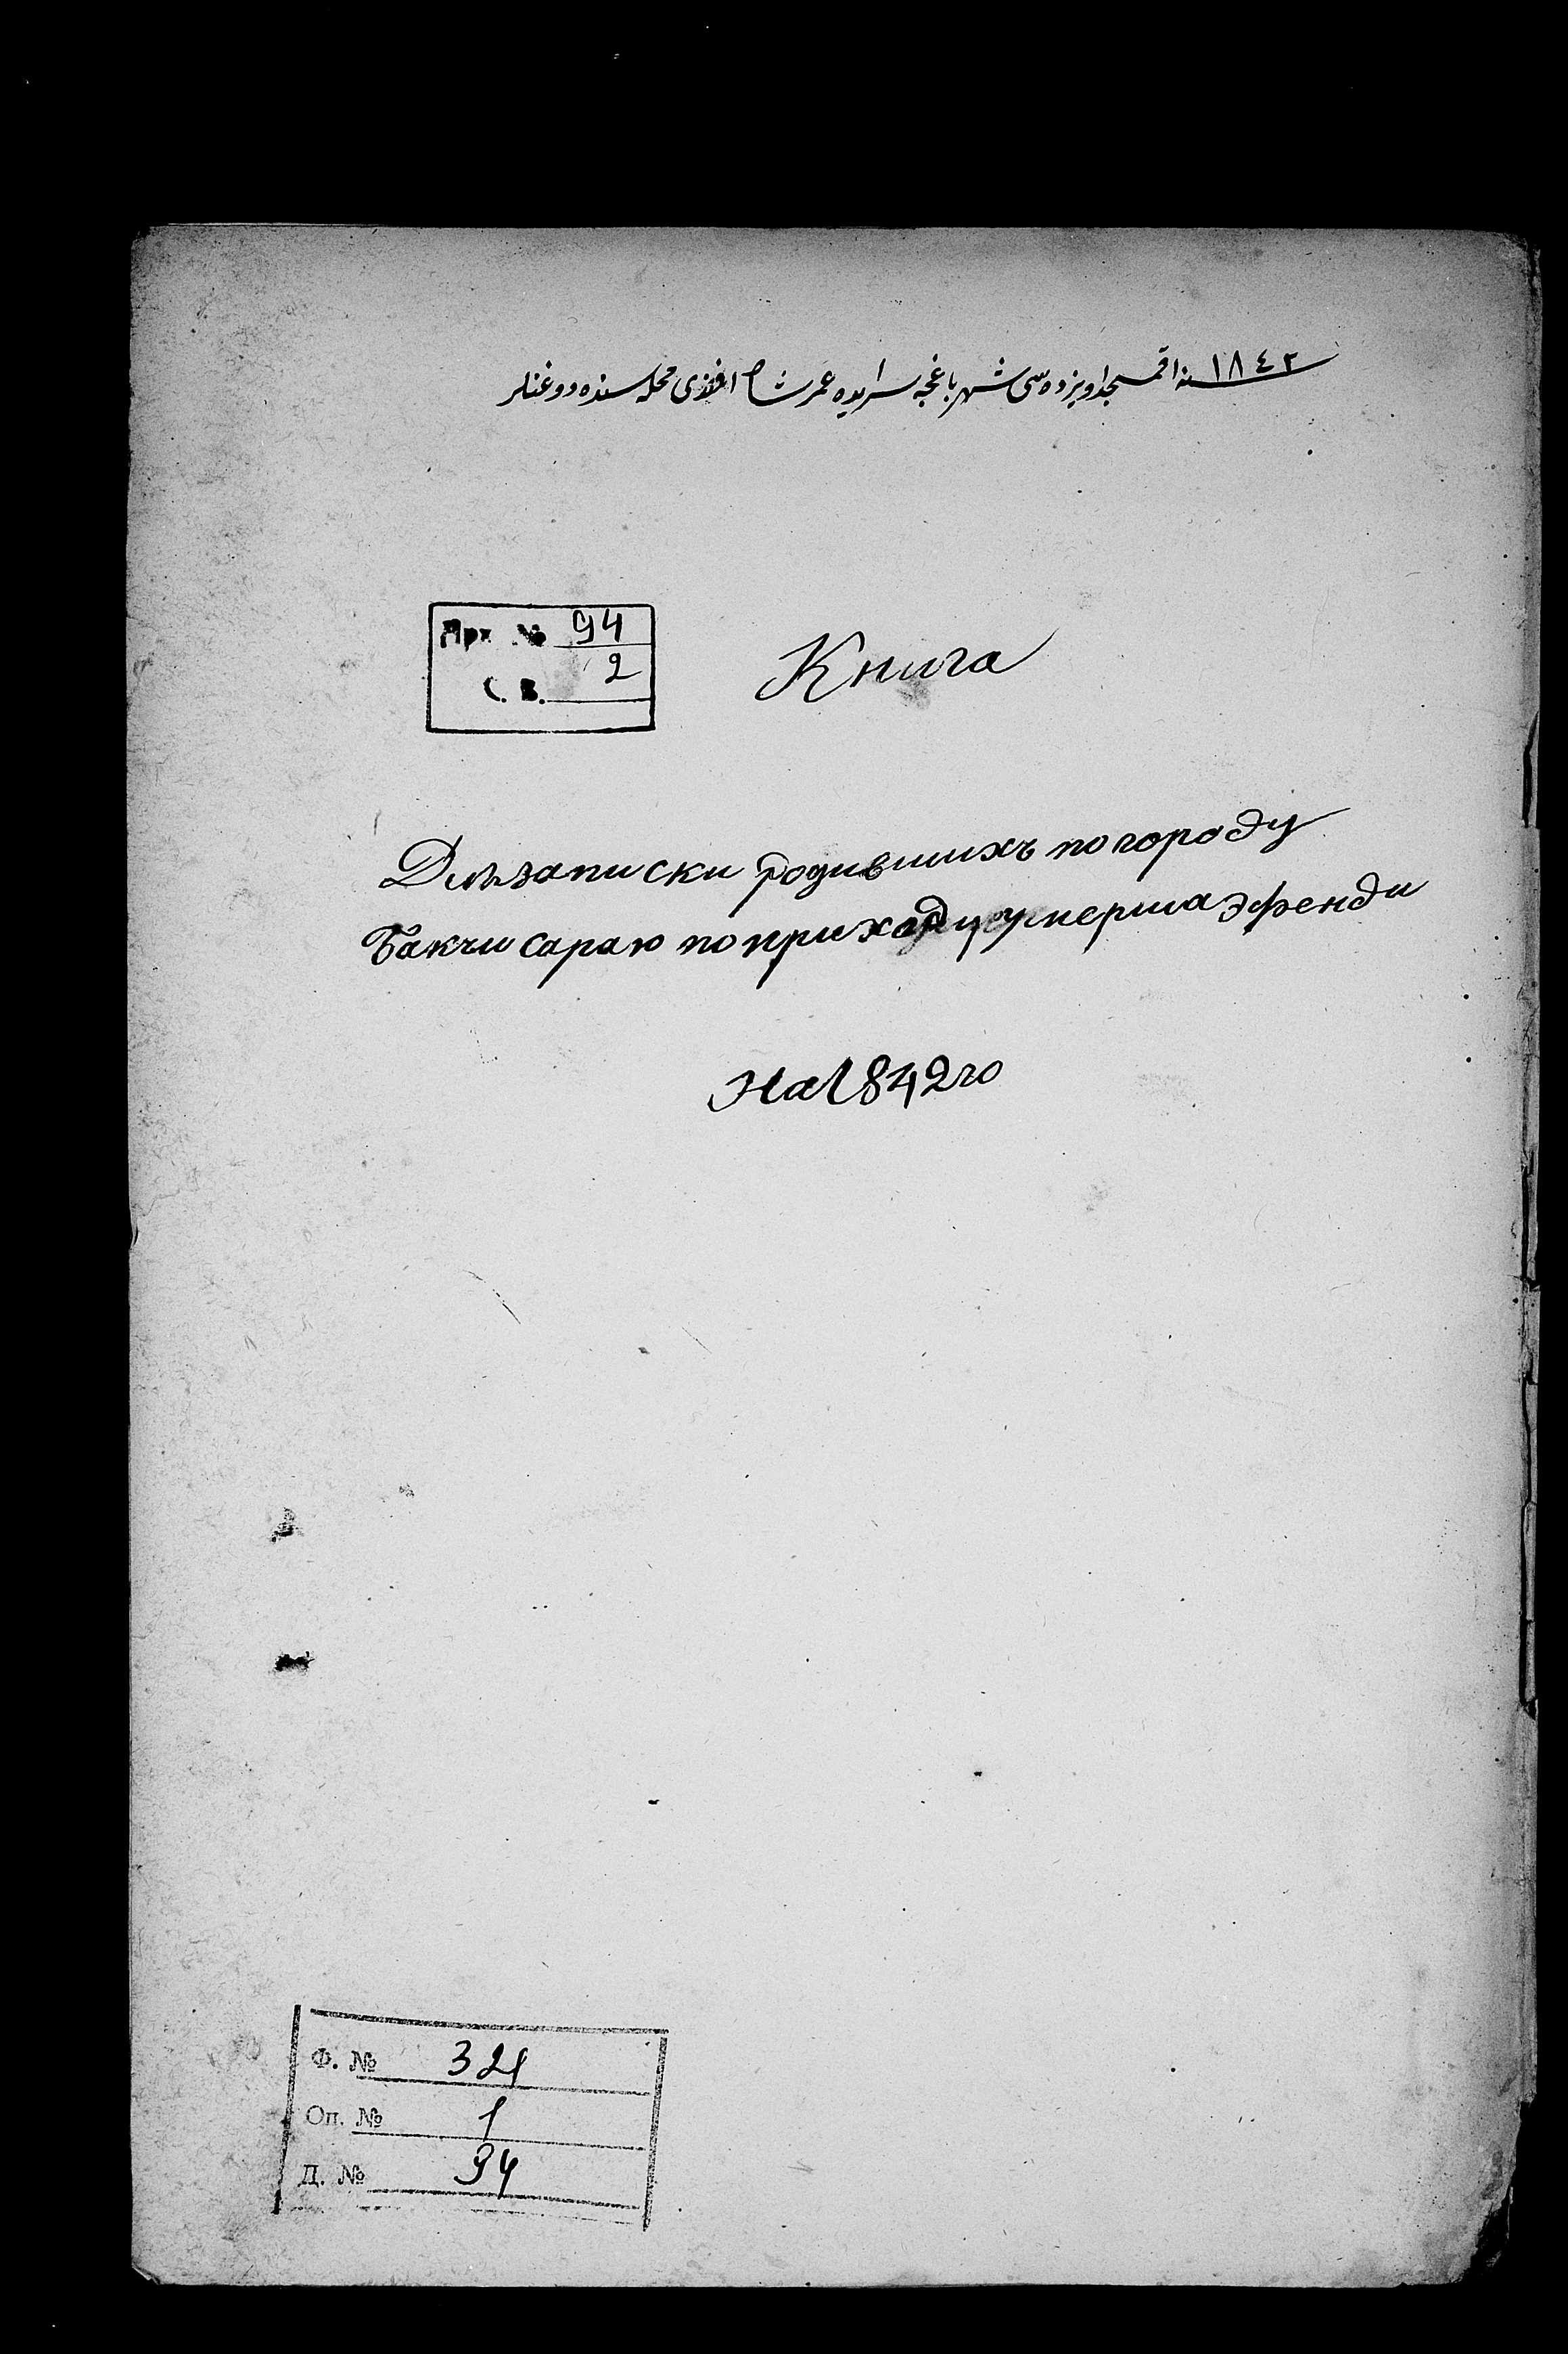 سنه ١٨٤٢ اقمسجد اويزده سى شهر باغچه سرايده عمرشاه افندى محله سنده دوغنلر
Арх № 94
С. В. 2
Книга
Для записки родившихъ по городу
Бакчи сараю по приходу умерша эфенди
На 1842 го
Ф. № 321
Оп. № 1
Д. № 94